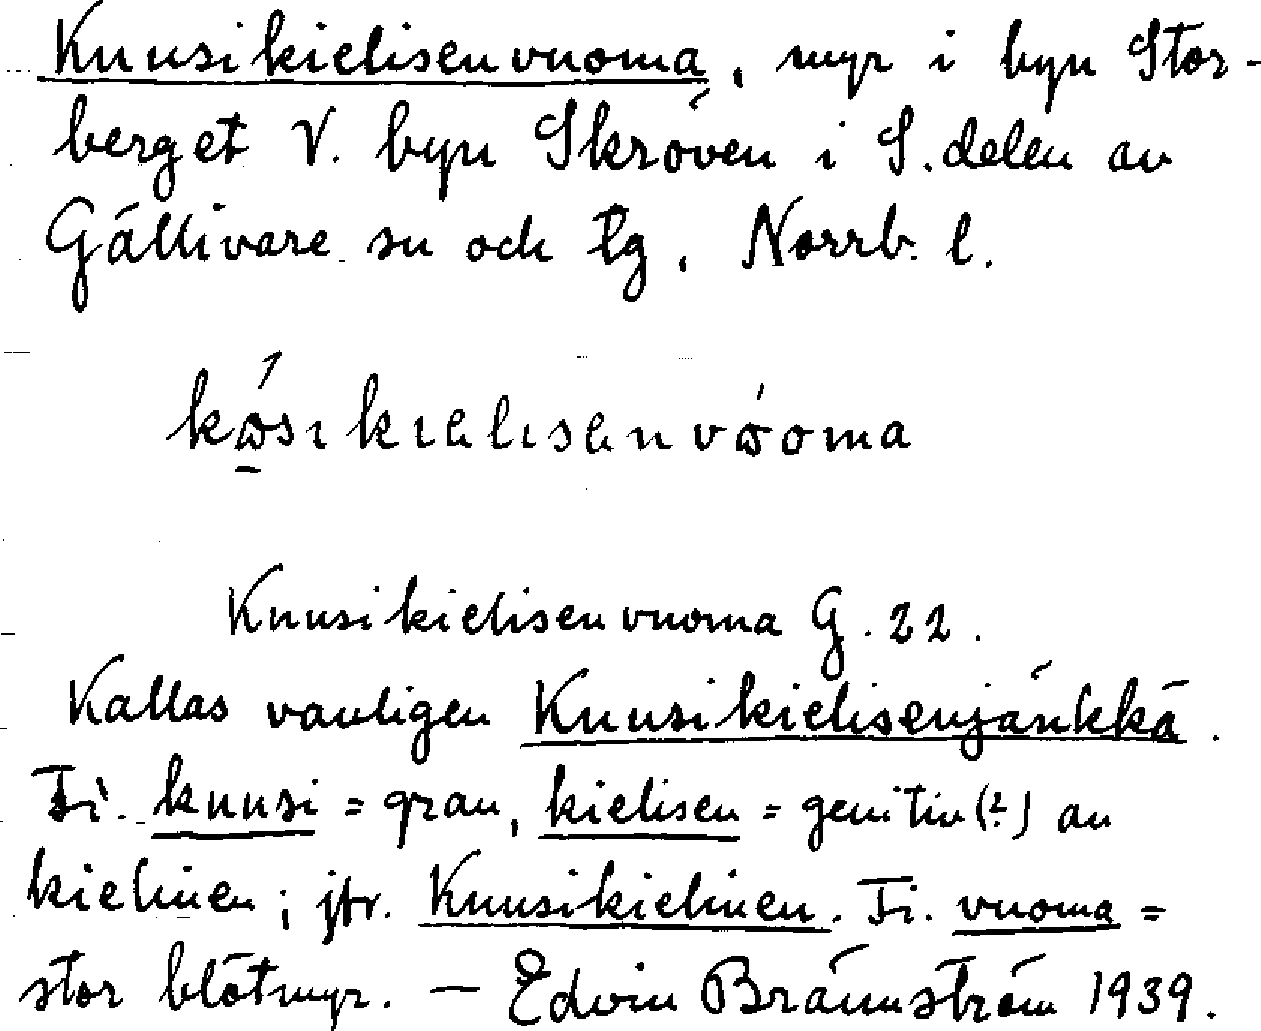 Kuusikielisenvuoma, myr i byn Stor-
berget V. byn Skröven i S. delen av
Gällivare sn och tg, Norrb. l.
kꞷ́sıkıelısen vꞷ́oma
Kuusikielisenvuoma G. 22.
Kallas vanligen Kuusikielisenjänkkä.
Fi. kuusi = gran, kielisen = genitiv (?) av
kielinen; jfr. Kuusikielinen. Fi. vuoma =
stor blötmyr. — Edvin Brännström 1939.